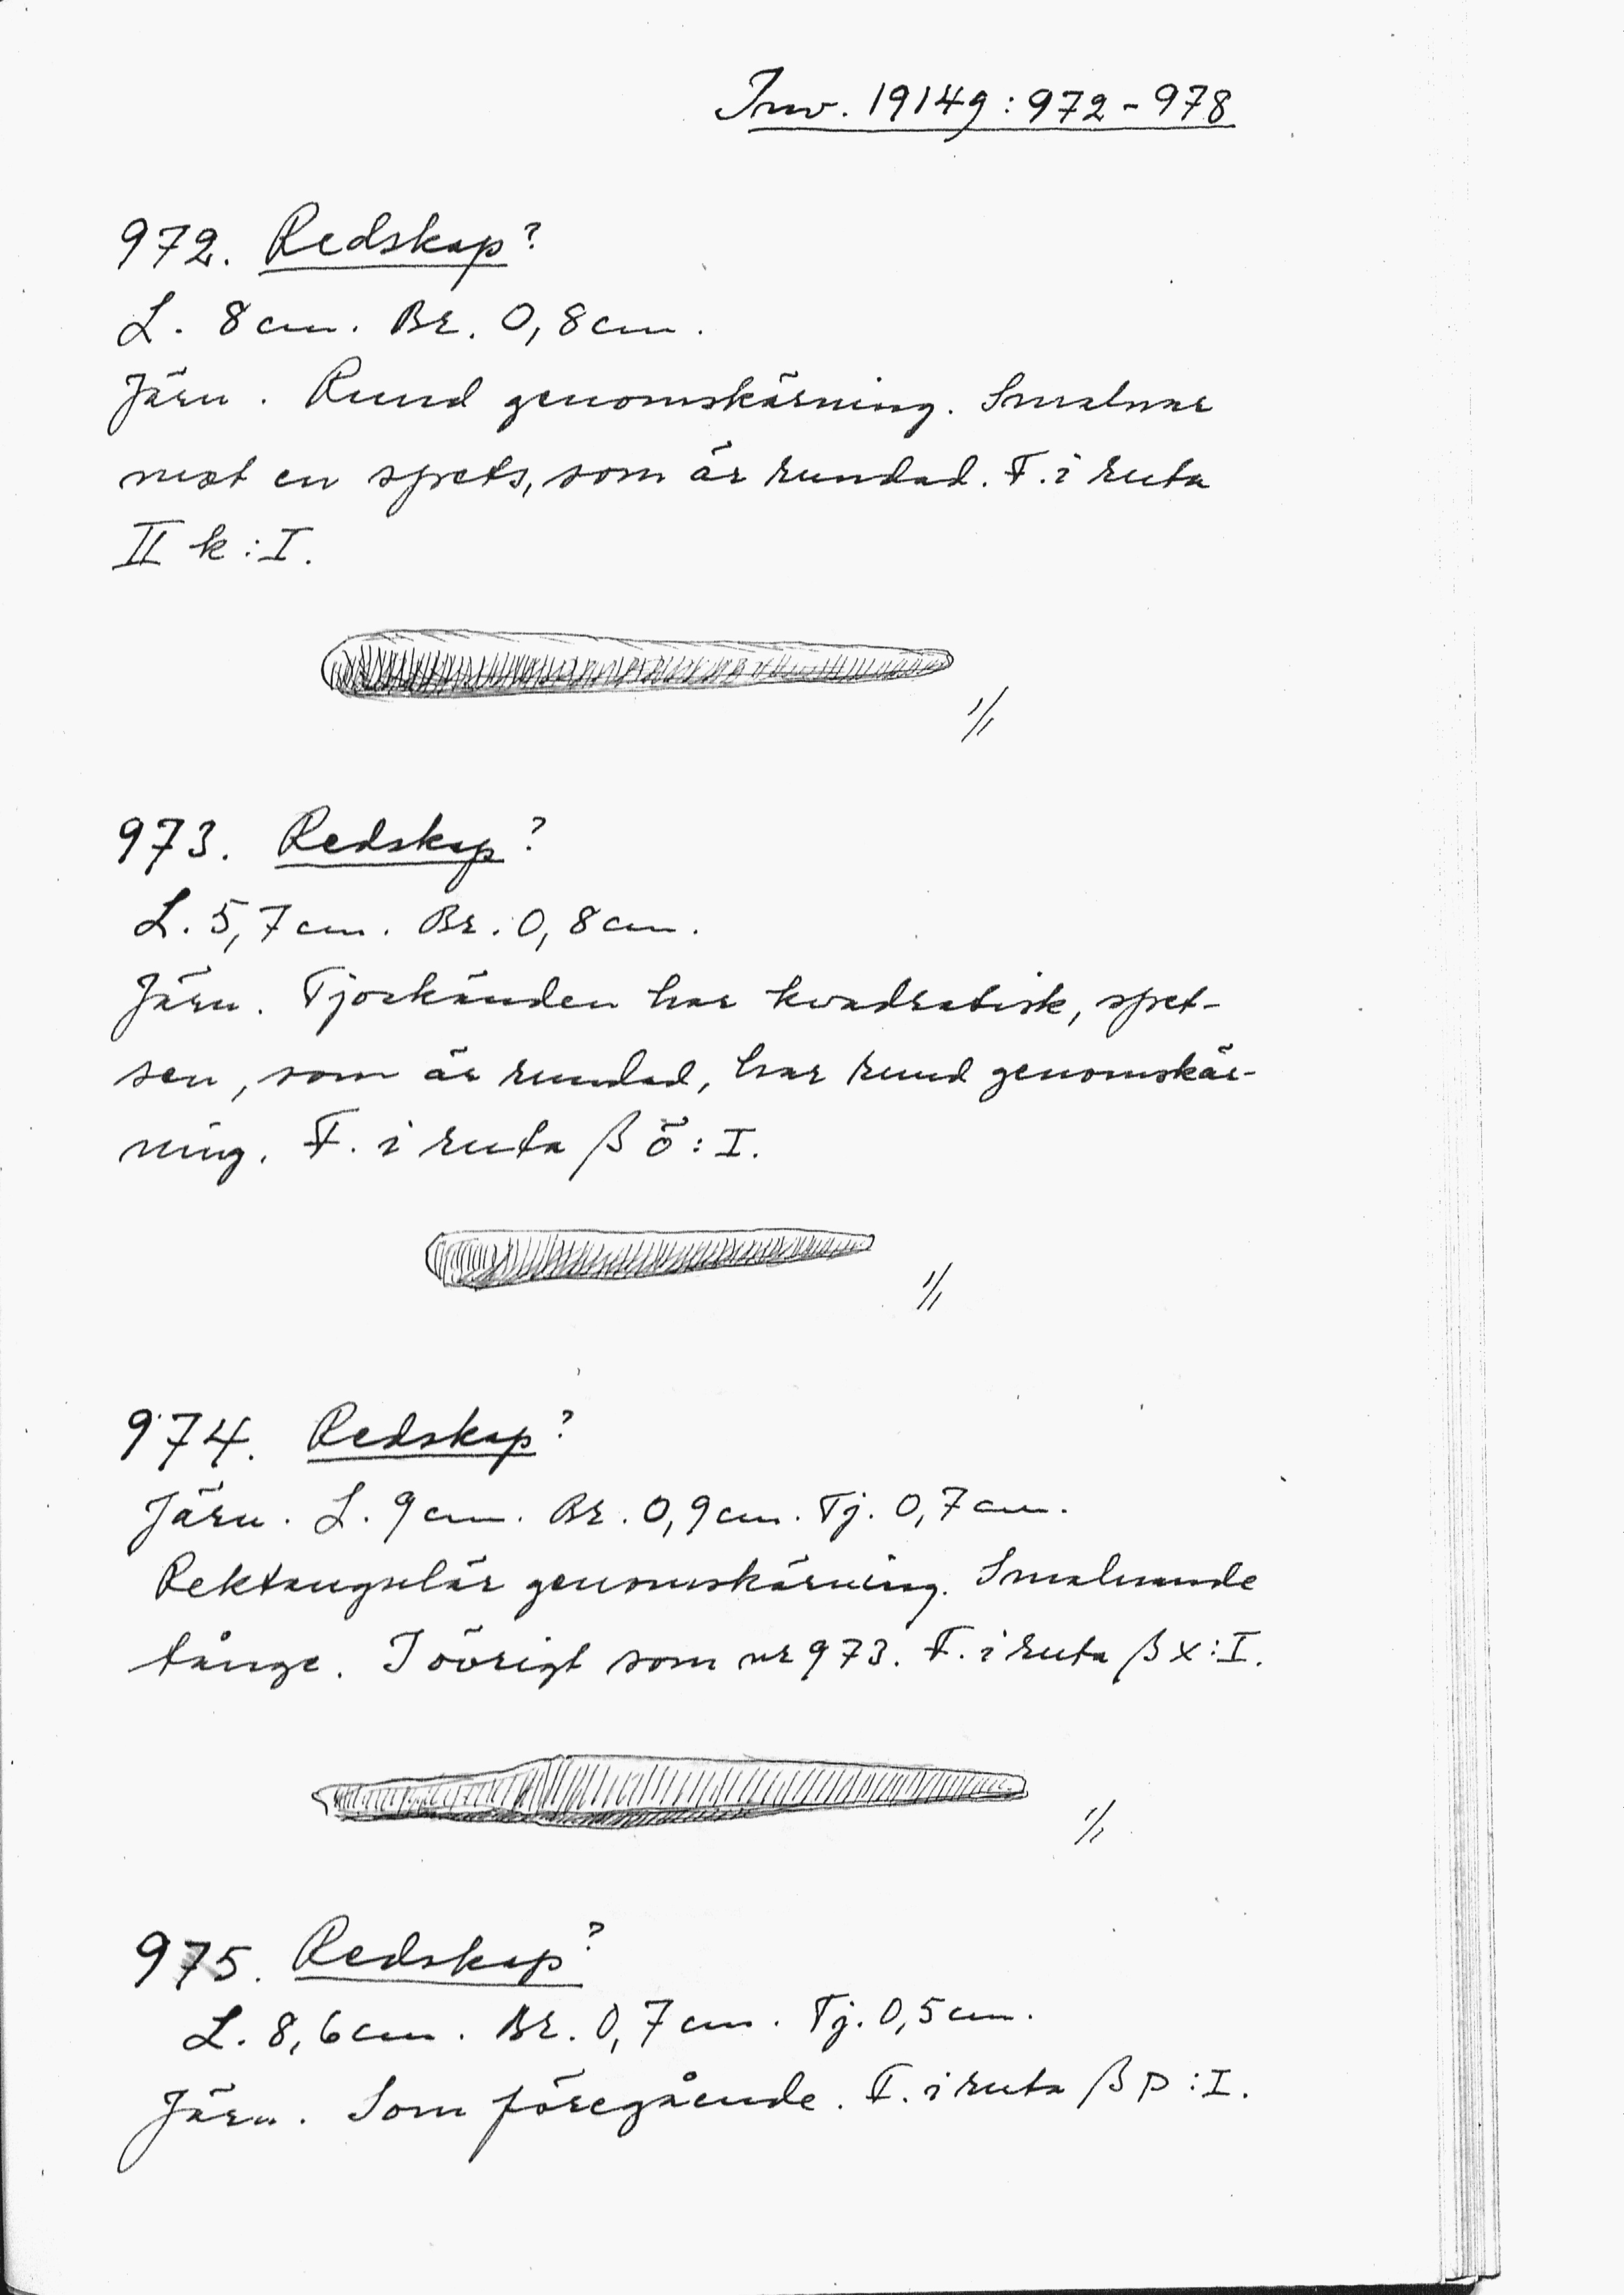 Inv. 19149:972-978
972. Redskap?
L. 8cm. Br. 0,8cm.
Järn. Rund genomskärning. Smalnar
mot en spets, som är rundad. F. i ruta
II k:I.
1/1
973. Redskap?
L. 5,7cm. Br. 0,8cm.
Järn. Tjockänden har kvadratisk, spet-
sen, som är rundad, har rund genomskär-
ning. F. i ruta β ö:I.
1/1
974. Redskap?
Järn. L. 9cm. Br. 0,9cm. Tj. 0,7cm.
Rektangulär genomskärning. Smalnande
tånge. I övrigt som nr 973. F. i ruta β x:I.
1/1
975. Redskap?
L. 8,6cm. Br. 0,7cm. Tj. 0,5cm.
Järn. Som föregående. F. i ruta β p:I.